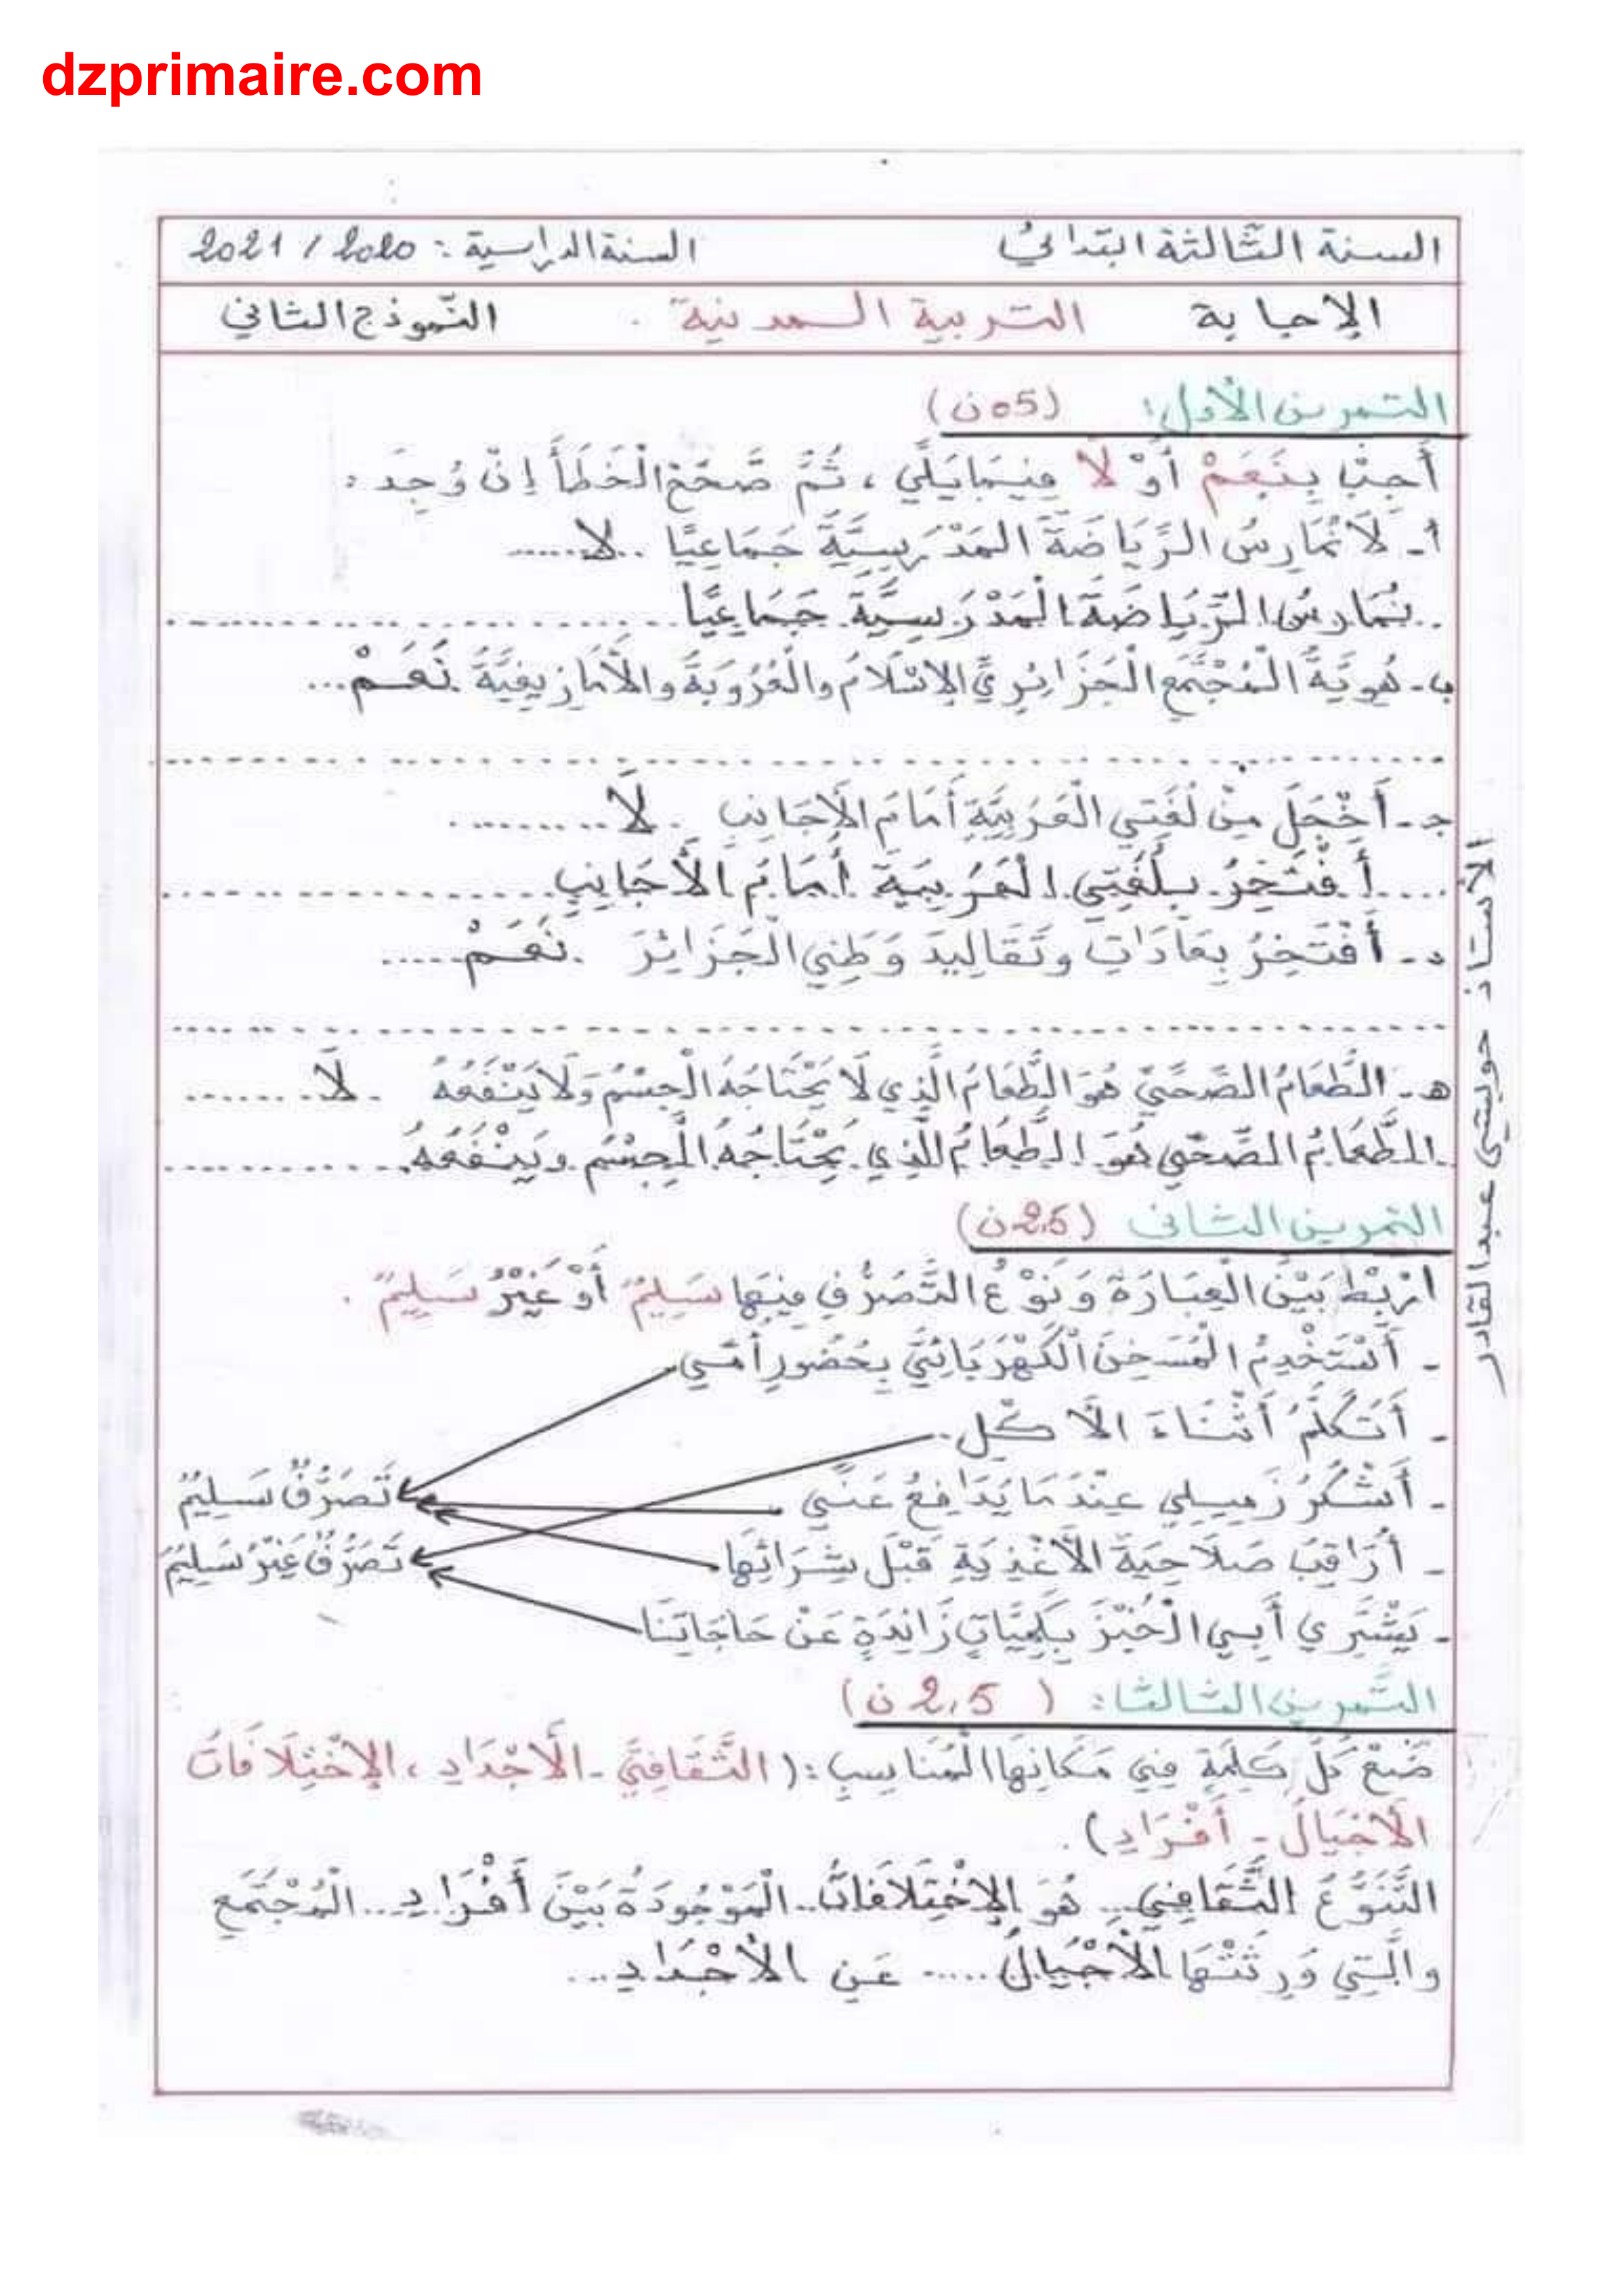 dzprimaire.com
السنة الثّالثة ابتدائيّ السنة الدراسية: 2020 / 2021
الإجابة التربية المدنية . النّموذج الثاني
التمرين الأول: (05 ن)
أَجِبْ بِنَعَمْ أَوْ لَا فِيمَا يَلِي ، ثُمَّ صَحِّحِ الْخَطَأَ إِنْ وُجِدَ :
أ- لَا نُمَارِسُ الرِّيَاضَةَ المَدْرَسِيَّةَ جَمَاعِيًّا ..لا......
..نُمَارِسُ الرِّيَاضَةَ الْمَدْرَسِيَّةَ جَمَاعِيًّا..........................
ب- هُوِيَّةُ الْمُجْتَمَعِ الْجَزَائِرِيِّ الْإِسْلَامُ والْعُرُوبَةُ والْأَمَازِيغِيَّةُ .نَعَمْ...
..........................................................
جـ - أَخْجَلُ مِنْ لُغَتِي الْعَرَبِيَّةِ أَمَامَ الْأَجَانِبِ .لَا..........
....أَفْتَخِرُ بِلُغَتِي الْعَرَبِيَّةِ أَمَامَ الْأَجَانِبِ.....................
د - أَفْتَخِرُ بِعَادَاتِ وتَقَالِيدِ وَطَنِي الْجَزَائِرَ .نَعَمْ.....
..........................................................
هـ - الطَّعَامُ الصِّحِّيُّ هُوَ الطَّعَامُ الَّذِي لَا يَحْتَاجُهُ الْجِسْمُ وَلَا يَنْفَعُهُ .لَا........
.الطَّعَامُ الصِّحِّي هُوَ الطَّعَامُ الَّذِي يَحْتَاجُهُ الْجِسْمُ ويَنْفَعُهُ...............
التمرين الثاني (2.5 ن)
ارْبِطْ بَيْنَ الْعِبَارَةِ وَنَوْعِ التَّصَرُّفِ فِيهَا سَلِيمٌ أَوْ غَيْرُ سَلِيمٍ .
- أَسْتَخْدِمُ الْمُسَخِّنَ الْكَهْرَبَائِيَّ بِحُضُورِ أُمِّي
- أَتَكَلَّمُ أَثْنَاءَ الْأَكْلِ
- أَشْكُرُ زَمِيلِي عِنْدَمَا يُدَافِعُ عَنِّي تَصَرُّفٌ سَلِيمٌ
- أُرَاقِبُ صَلَاحِيَةَ الْأَغْذِيَةِ قَبْلَ شِرَائِهَا تَصَرُّفٌ غَيْرُ سَلِيمٍ
- يَشْتَرِي أَبِي الْخُبْزَ بِكَمِيَّاتٍ زَائِدَةٍ عَنْ حَاجَاتِنَا
التَّمرين الثالث: ( 2,5 ن)
ضَعْ كُلَّ كَلِمَةٍ فِي مَكَانِهَا الْمُنَاسِبِ : (الثَّقَافِيّ - الْأَجْدَادِ ، الْإِخْتِلَافَاتُ
الْأَجْيَالُ - أَفْرَادِ) .
التَّنَوُّعُ الثَّقَافِي... هُوَ الْإِخْتِلَافَاتُ.. الْمَوْجُودَةُ بَيْنَ أَفْرَادِ... الْمُجْتَمَعِ
والَّتِي وَرِثَتْهَا الْأَجْيَالُ..... عَنِ الْأَجْدَادِ...
الأستاذ حويشي عبد القادر